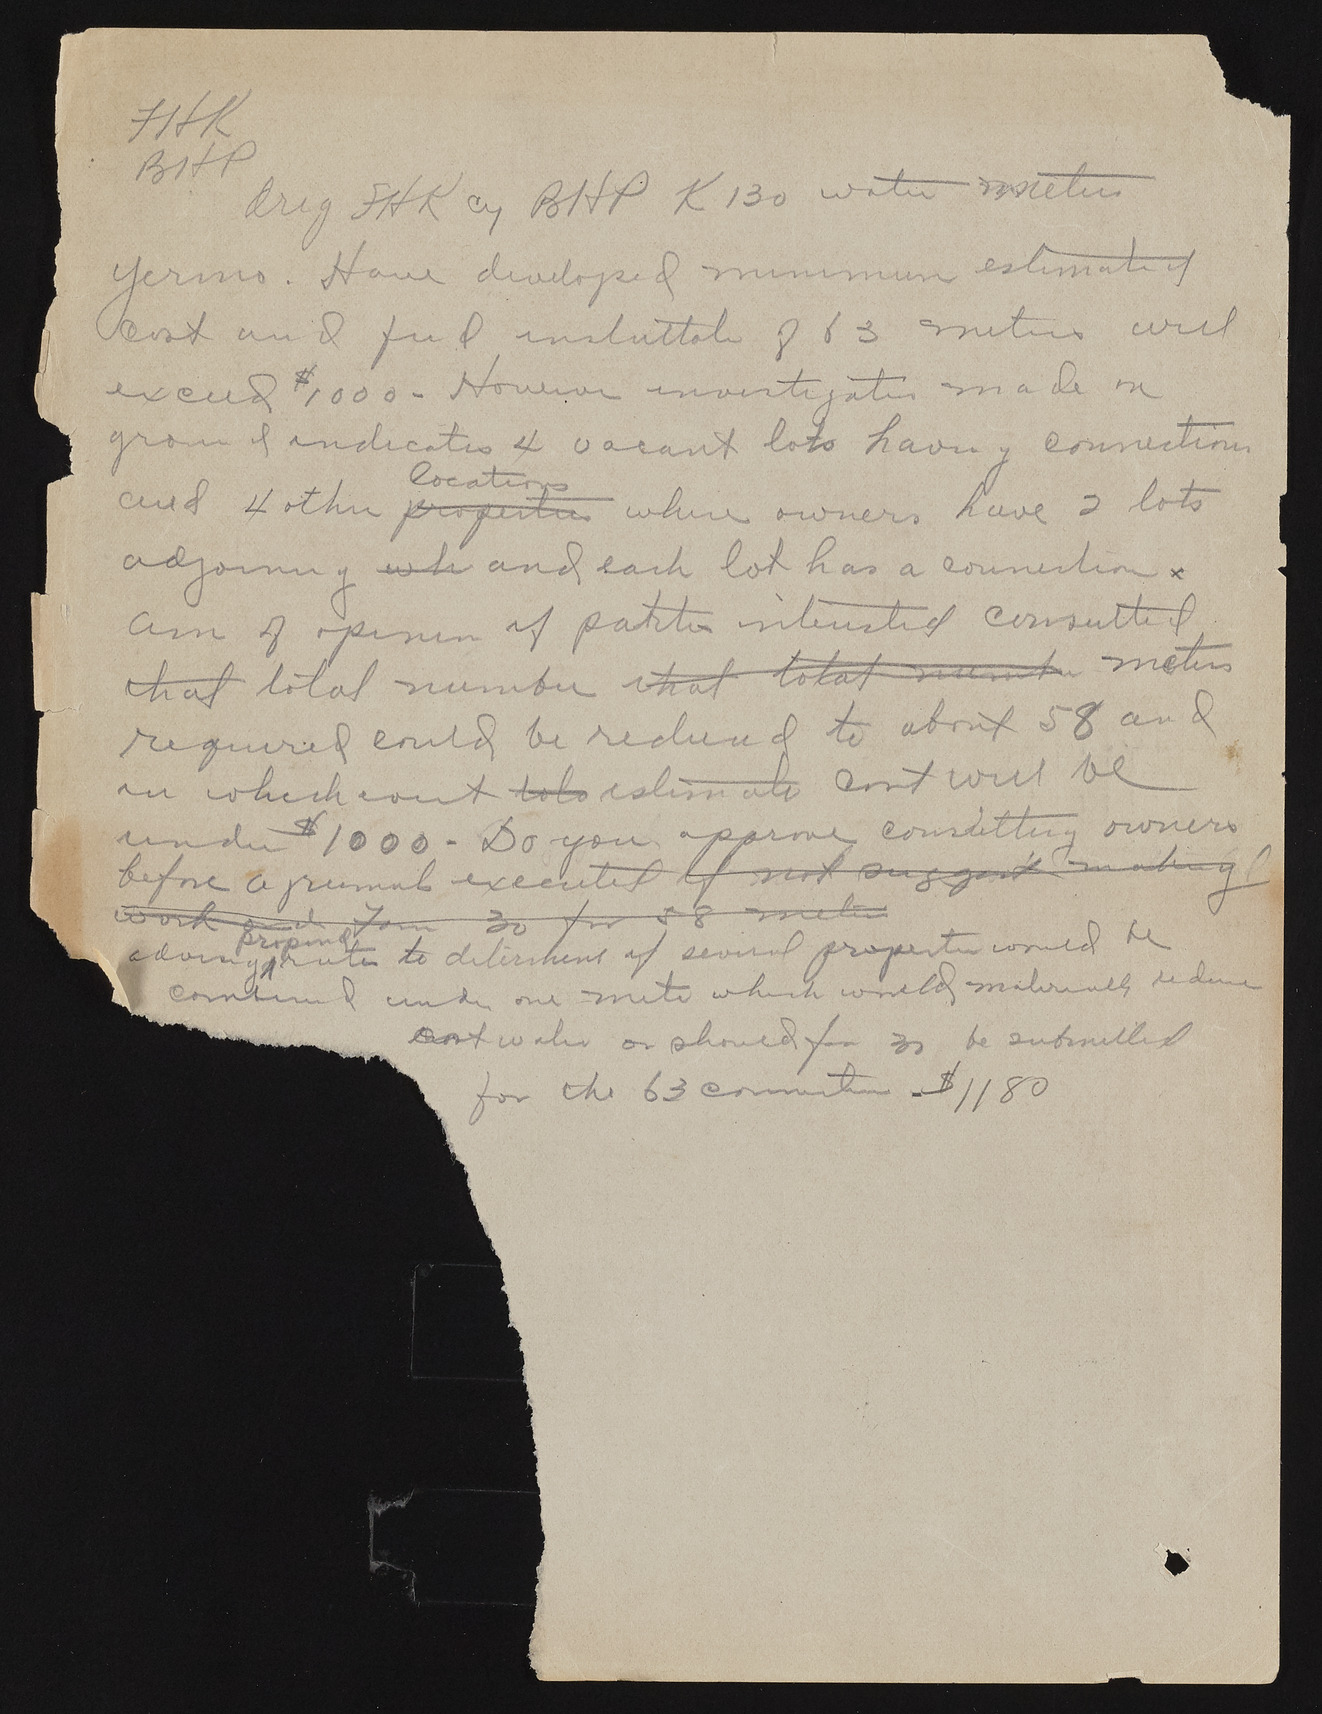 FHK
BHP
Orig FHK cy BHP K 130 water meters
Yermo. Have developed minimum estimated
cost and full installatn of 63 meters will
exceed $1000 - However investigation made on
ground indicates 4 vacant lots having connections
locations
and 4 other properties where owners have 2 lots
adjoining wh and each lot has a connection x
am of opinion if parties interested consulted
that total number that total number meters
required could be reduced to about 58 and
in which event tots estimate cost will be
under $1000 - Do you approve consulting owners
before agreement executed if not suggest making
work and Form 30 for 58 meters
proposed
advising rates to determine if several properties would be
combined under one meter which would materially reduce
cost water or should fm 30 be submitted
for the 63 connection - $1180